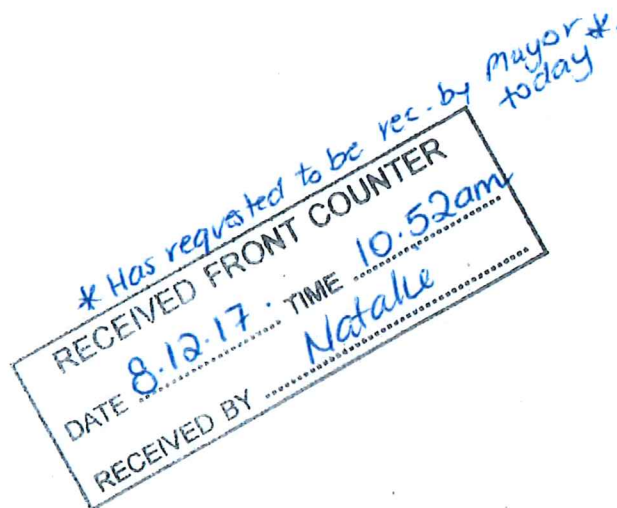 * Has requested to be rec. by Mayor
today *
RECEIVED FRONT COUNTER
DATE 8.12.17. TIME 10.52am
RECEIVED BY Natalie